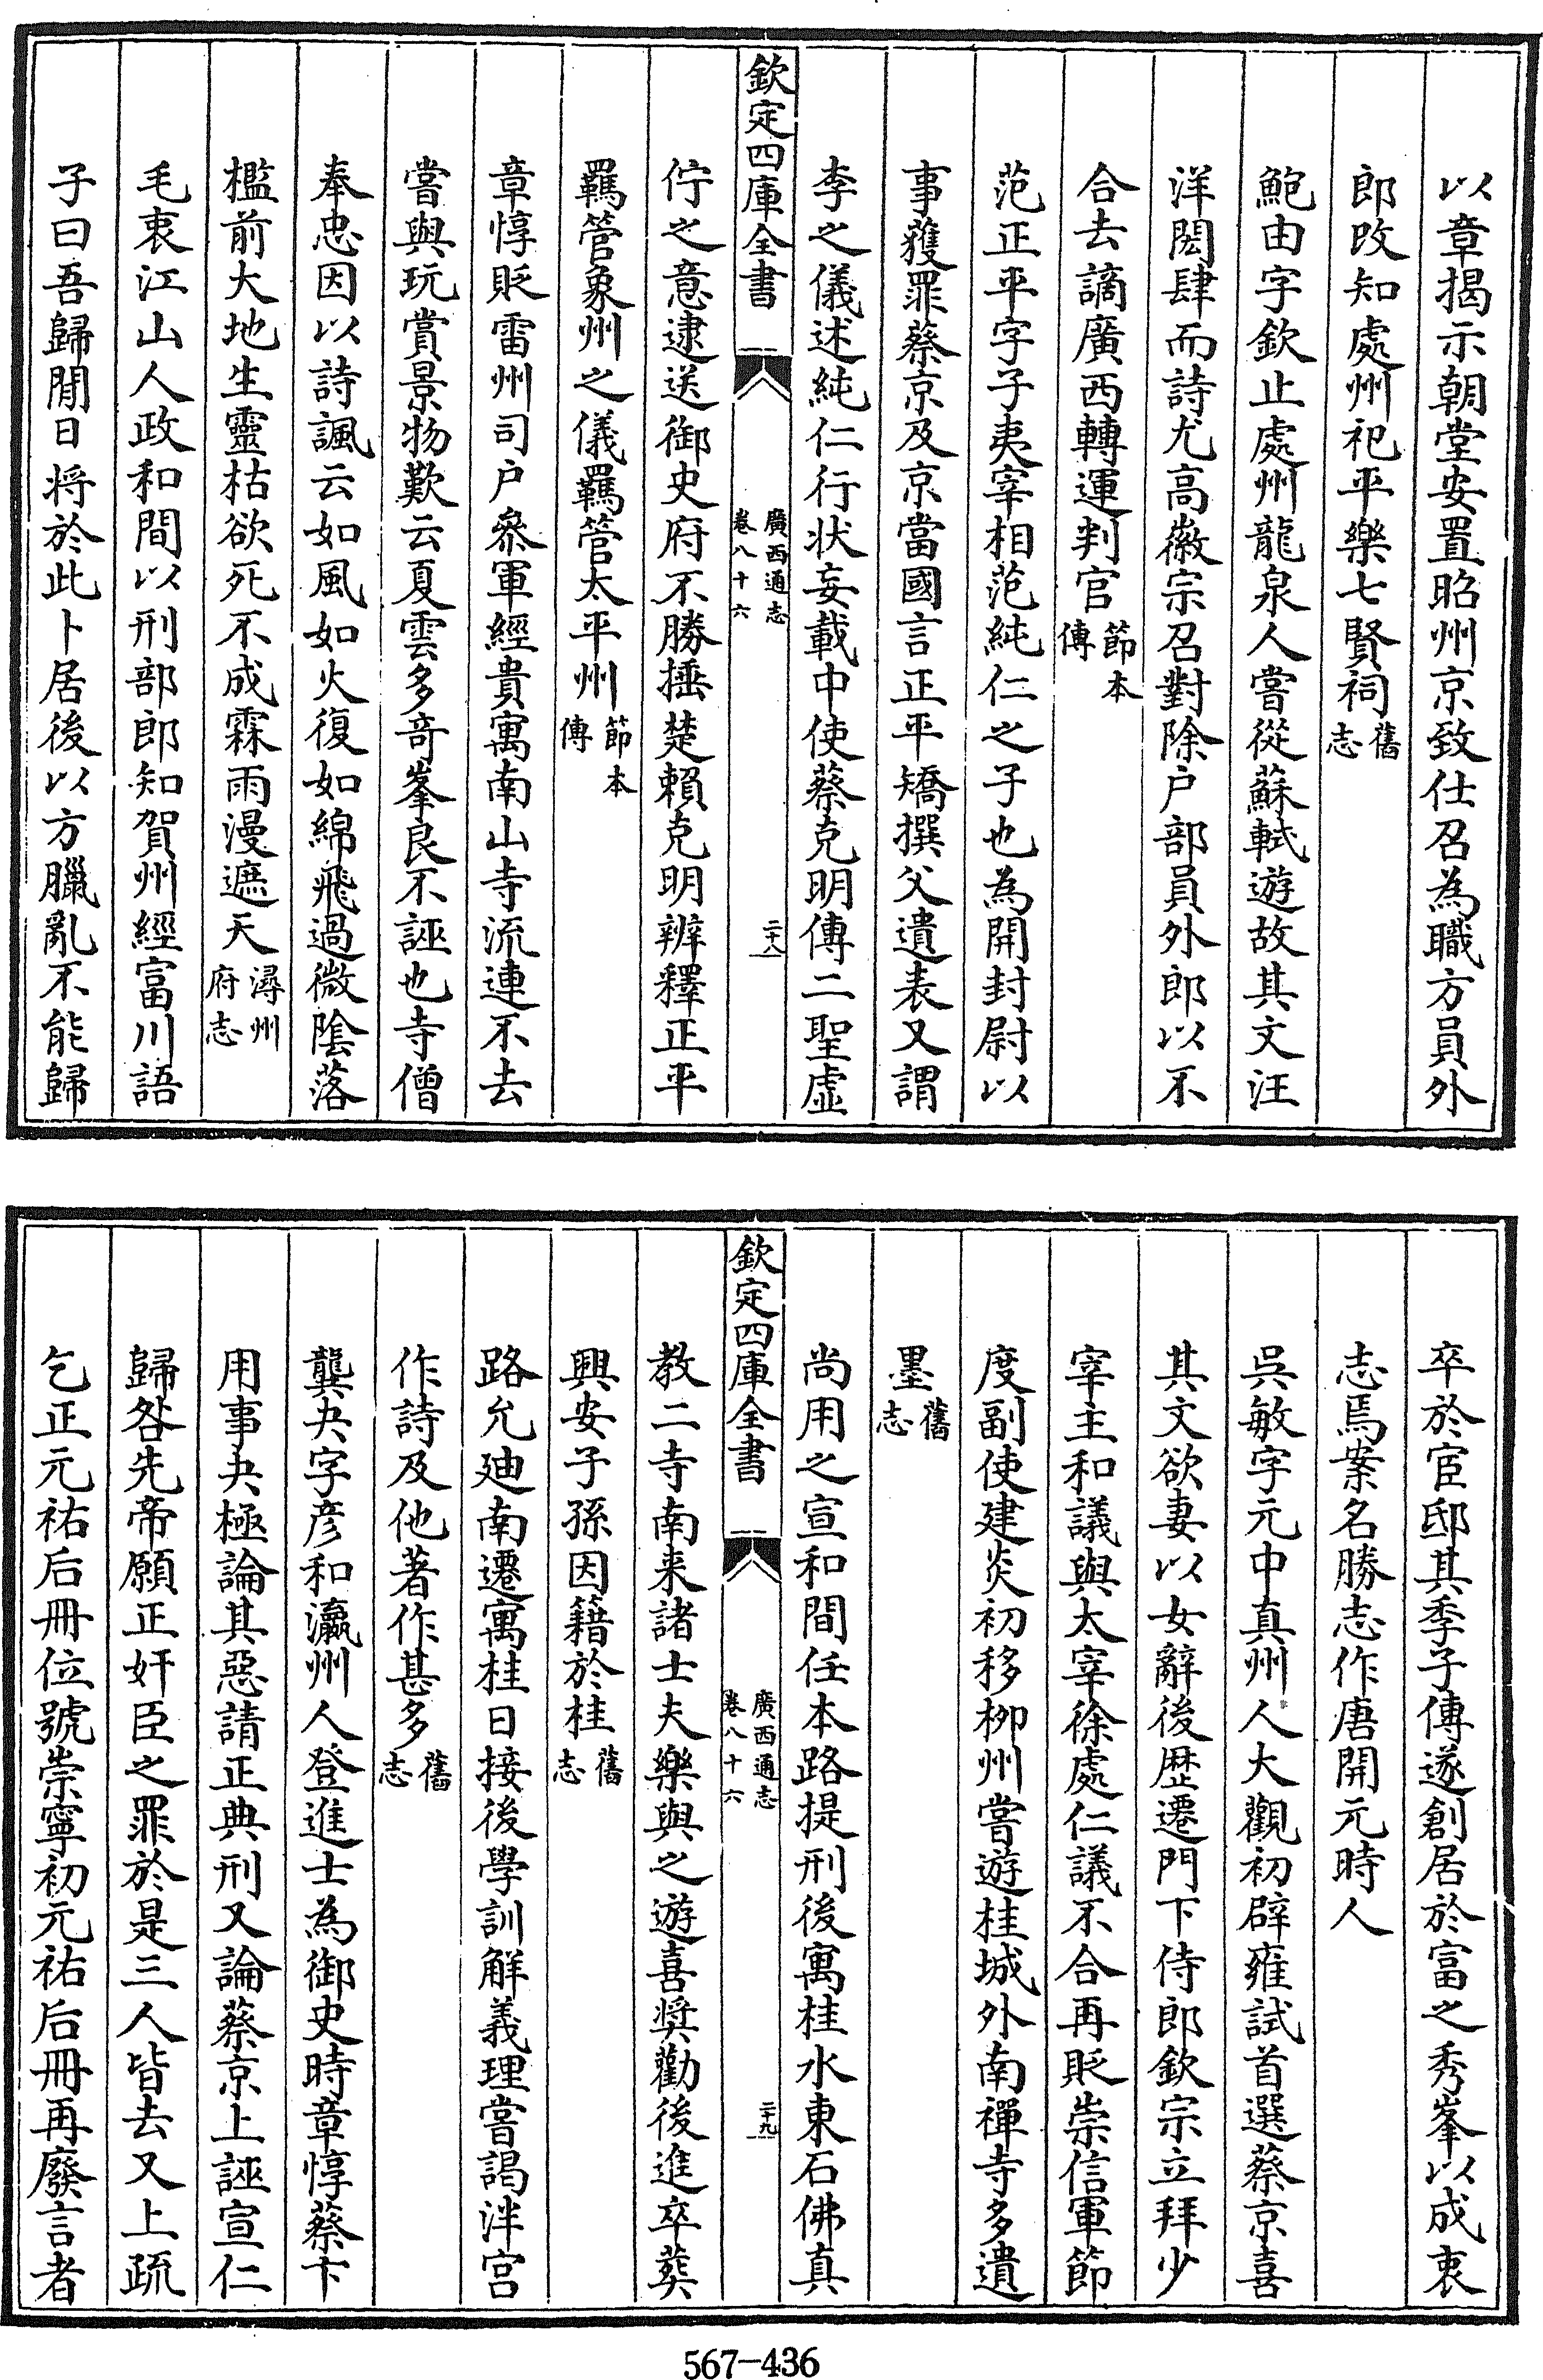 以章揭示朝堂安置昭州京致仕召為職方員外
郎改知處州祀平樂七賢祠舊志
鮑由字欽止處州龍泉人嘗從蘇軾遊故其文汪
洋閎肆而詩尤高徽宗召對除户部員外郎以不
合去謫廣西轉運判官節本傳
范正平字子夷宰相范純仁之子也為開封尉以
事獲罪蔡京及京當國言正平矯撰父遺表又謂
李之儀述純仁行状妄載中使蔡克明傳二聖虛
欽定四庫全書
廣西通志
卷八十六
二十八
佇之意逮送御史府不勝捶楚賴克明辨釋正平
羈管象州之儀羈管太平州節本傳
章惇貶雷州司户叅軍經貴寓南山寺流連不去
嘗與玩賞景物歎云夏雲多竒峯良不誣也寺僧
奉忠因以詩諷云如風如火復如綿飛過微陰落
檻前大地生靈枯欲死不成霖雨漫遮天潯州府志
毛衷江山人政和間以刑部郎知賀州經富川語
子曰吾歸閒日将於此卜居後以方臘亂不能歸
卒於官邸其季子傳遂創居於富之秀峯以成衷
志焉案名勝志作唐開元時人
吳敏字元中真州人大觀初辟雍試首選蔡京喜
其文欲妻以女辭後歴遷門下侍郎欽宗立拜少
宰主和議與太宰徐處仁議不合再貶崇信軍節
度副使建炎初移柳州嘗遊桂城外南禪寺多遺
墨舊志
尚用之宣和間任本路提刑後寓桂水東石佛真
欽定四庫全書
廣西通志
卷八十六
二十九
教二寺南来諸士夫樂與之遊喜奬勸後進卒葬
興安子孫因籍於桂舊志
路允廸南遷寓桂日接後學訓解義理嘗謁泮宮
作詩及他著作甚多舊志
龔夬字彦和瀛州人登進士為御史時章惇蔡卞
用事夬極論其惡請正典刑又論蔡京上誣宣仁
歸咎先帝願正奸臣之罪於是三人皆去又上疏
乞正元祐后冊位號崇寧初元祐后冊再廢言者
567-436